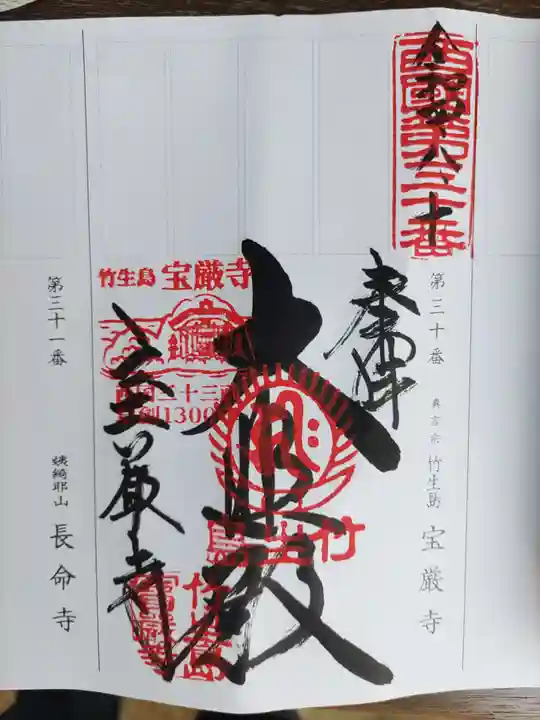 西國第三十番
令和四 八 十
第三十番 真言宗 竹生島 宝厳寺
奉拝
大悲殿
竹生島
竹生島 宝厳寺
西国三十三所
草創1300年
宝厳寺
第三十一番 姨綺耶山 長命寺